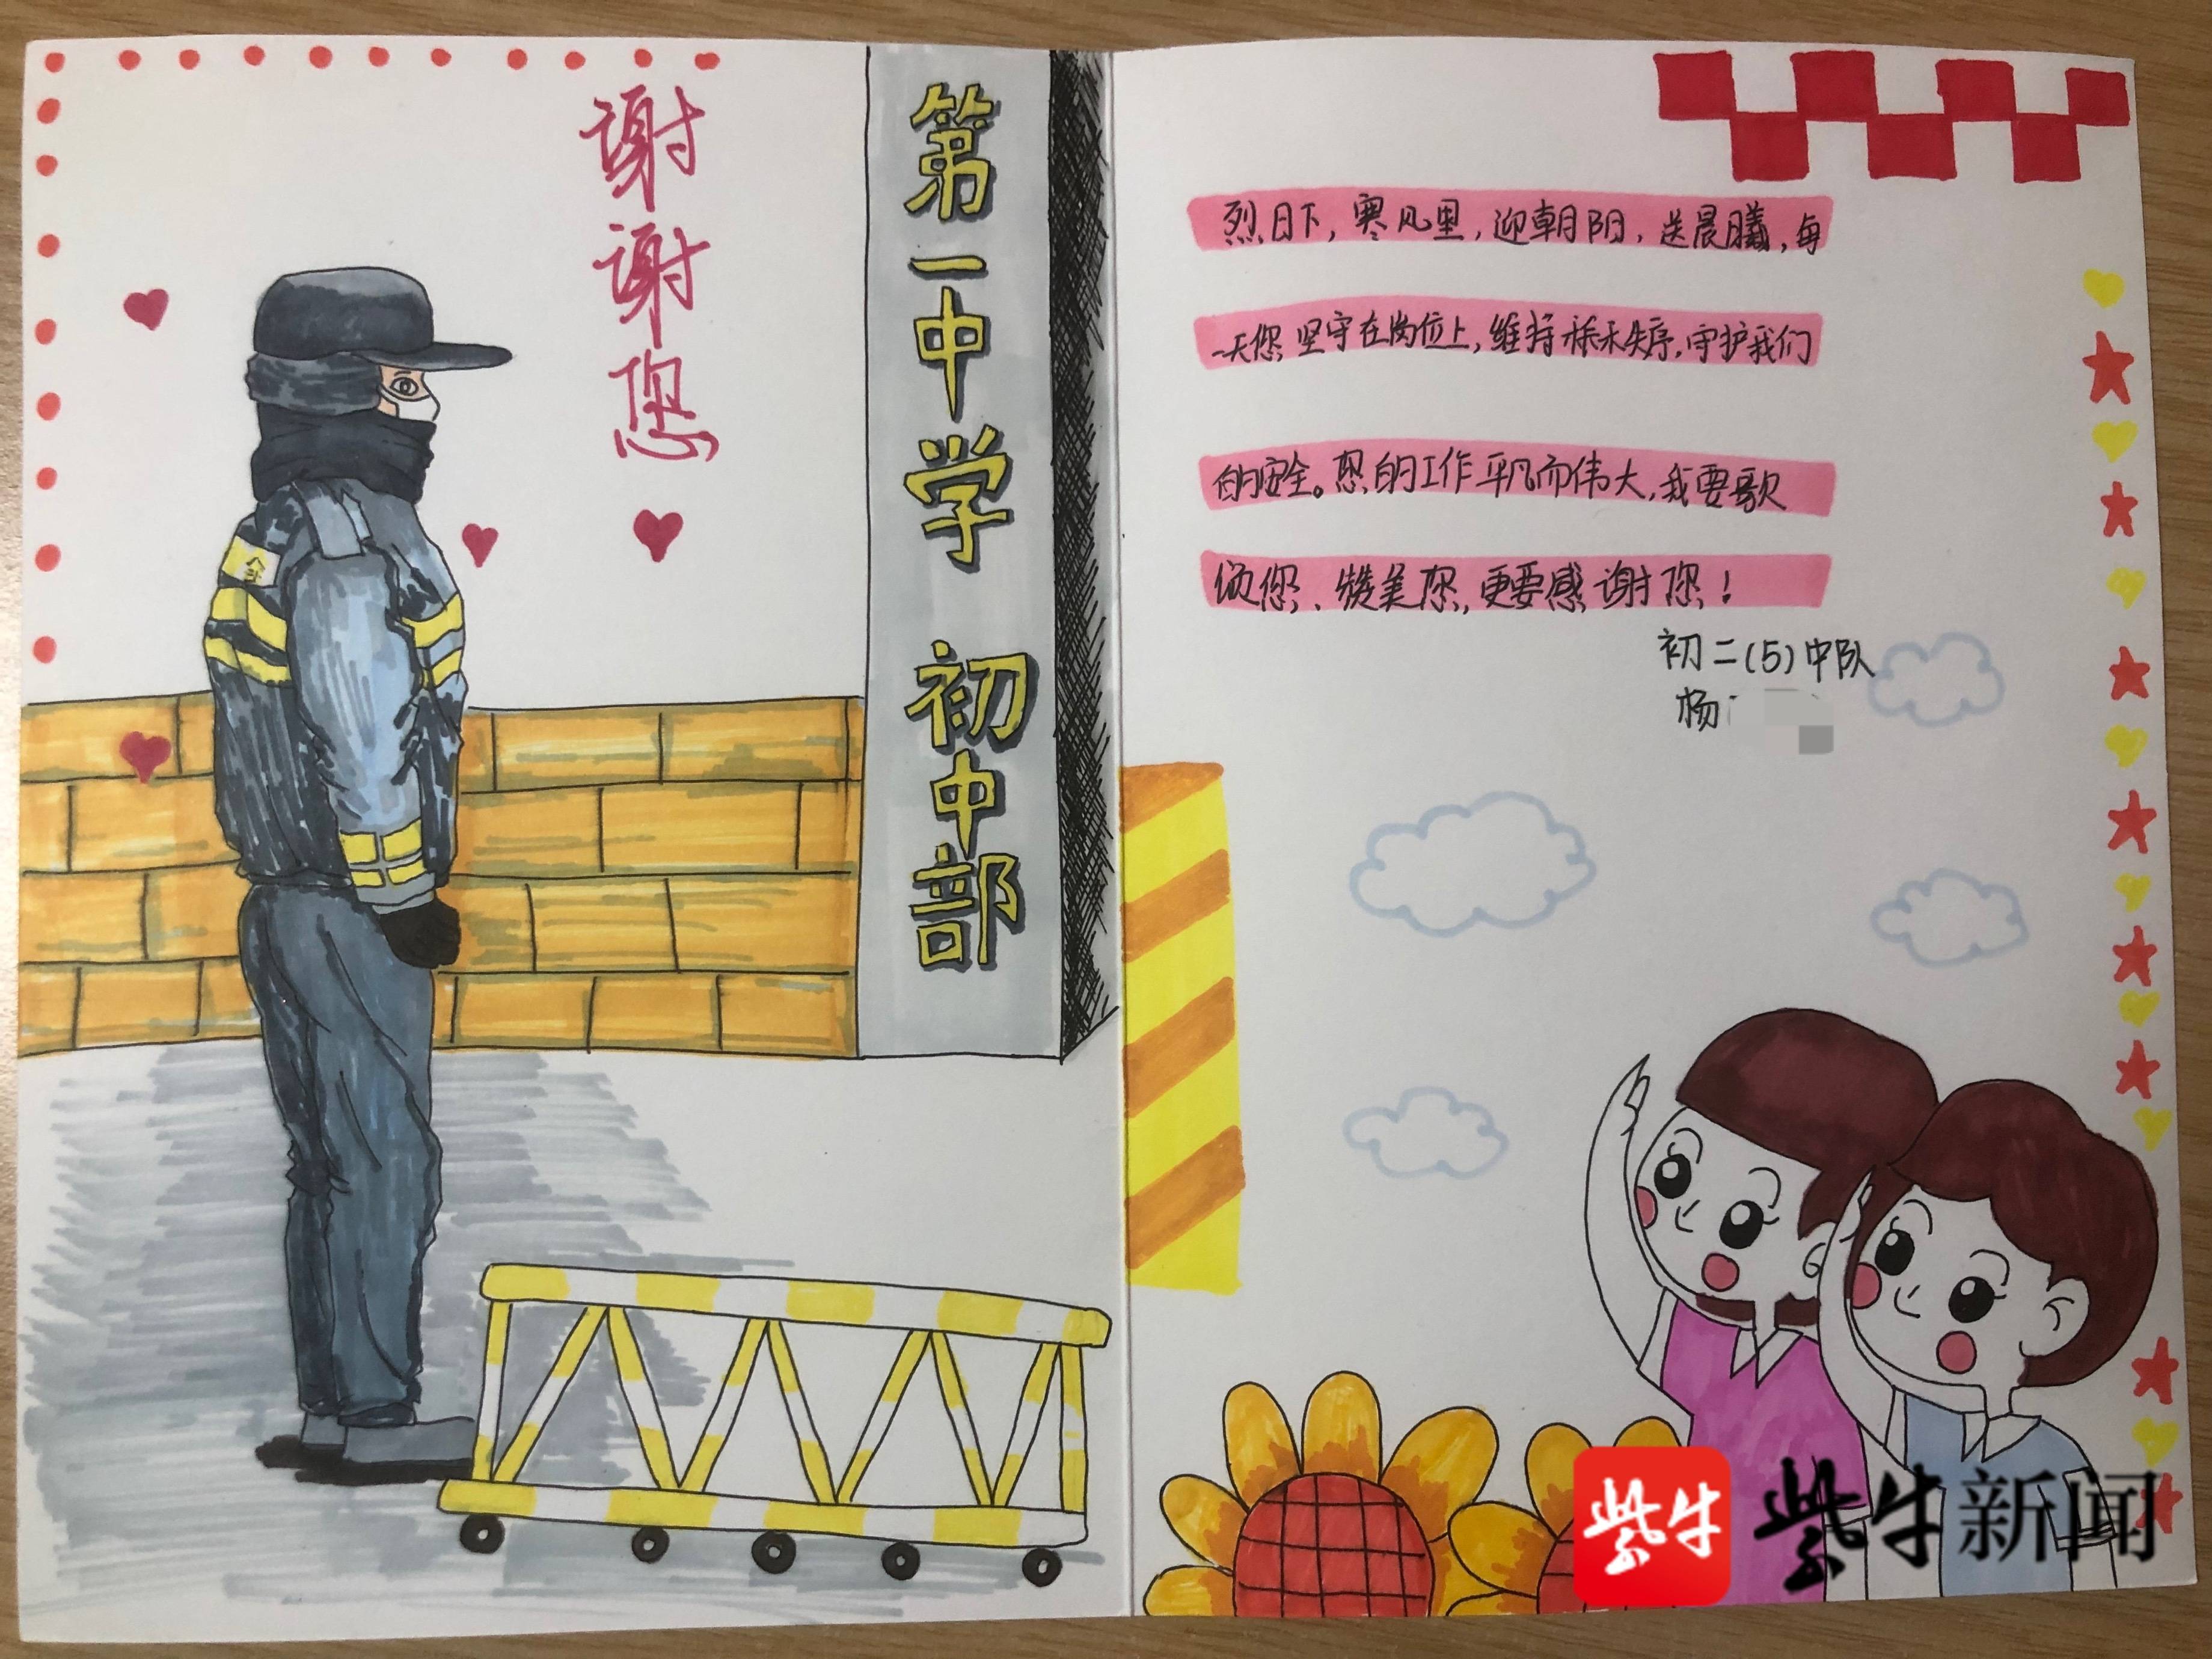 谢谢您
第一中学 初中部
烈日下，寒风里，迎朝阳，送晨曦，每
一天您坚守在岗位上，维持秩序，守护我们
的安全。您的工作平凡而伟大，我要歌
颂您、赞美您，更要感谢您！
初二(5)中队
杨
紫牛 紫牛新闻